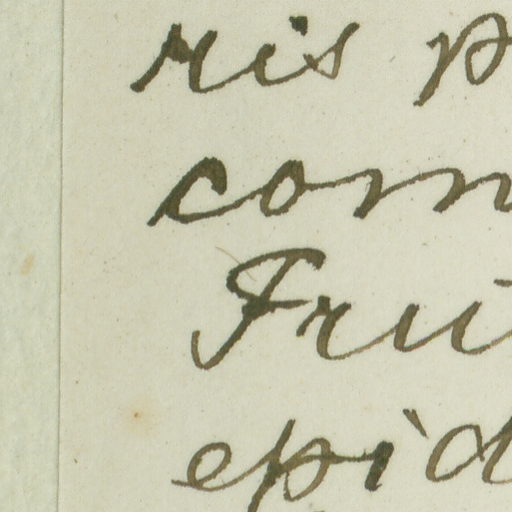 ris p
com
Fru
epid